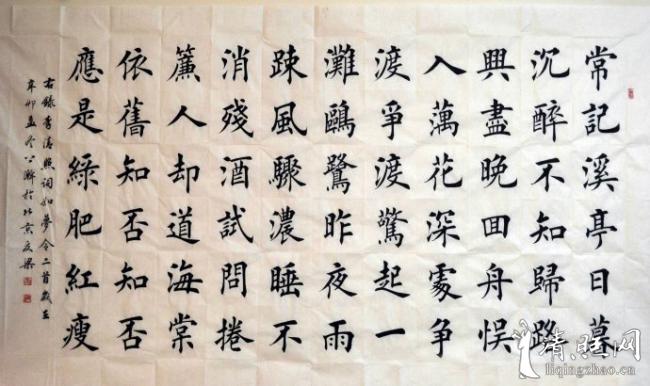 常記溪亭日暮
沉醉不知歸路
興盡晚回舟悞
入藕花深處爭
渡爭渡驚起一
灘鷗鷺昨夜雨
疎風驟濃睡不
消殘酒試問捲
簾人却道海棠
依舊知否知否
應是綠肥紅瘦
右錄李清照詞如夢令二首歲在
辛卯孟冬 於北京
清照网
liqingzhao.cn